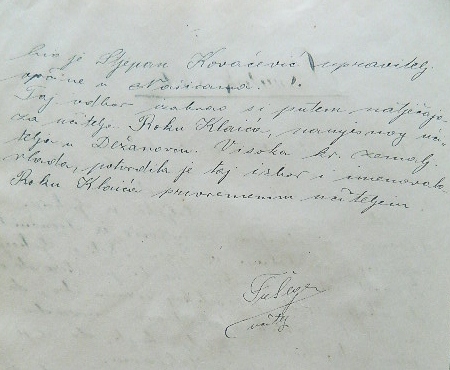 bio je Stjepan Kovačević upravitelj
općine u Našicama.
Taj odbor izabrao si putem natječaja
za učitelja Roku Klaića, namjesnog uči-
telja u Dežanovcu. Visoka kr. zemalj.
vlada, potvrdila je taj izbor i imenovala
Roku Klaića privremenim učiteljem